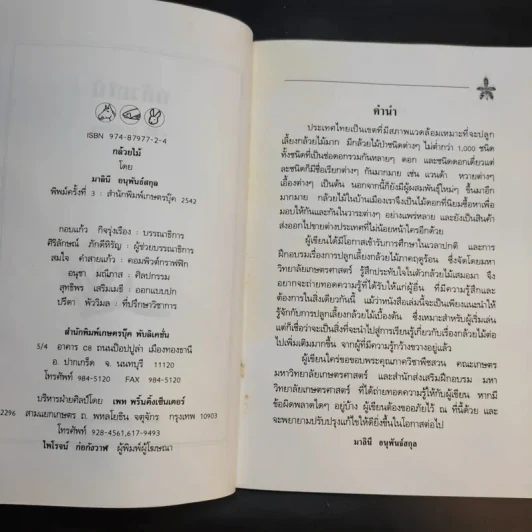 ISBN 974-87977-2-4
กล้วยไม้
โดย
มาลินี อนุพันธ์สกุล
พิมพ์ครั้งที่ 3 : สำนักพิมพ์เกษตรบุ๊ค 2542
กอบแก้ว กิจรุ่งเรือง : บรรณาธิการ
ศิริลักษณ์ ภักดีหิรัญ : ผู้ช่วยบรรณาธิการ
สมใจ คำสายแก้ว : คอมพิวต์กราฟฟิก
อนุชา มณีภาส : ศิลปกรรม
สุทธิพร เสริมเมธี : ออกแบบปก
ปรีดา พัววิมล : ที่ปรึกษาวิชาการ
สำนักพิมพ์เกษตรบุ๊ค พับลิเคชั่น
5/4 อาคาร C8 ถนนป๊อปปูล่า เมืองทองธานี
อ. ปากเกร็ด จ. นนทบุรี 11120
โทรศัพท์ 984-5120 FAX 984-5120
บริหารฝ่ายศิลป์โดย เพท พริ้นติ้งเซ็นเตอร์
2296 สามแยกเกษตร ถ. พหลโยธิน จตุจักร กรุงเทพ 10903
โทรศัพท์ 928-4561,617-9493
ไพโรจน์ ก่อกังวาฬ ผู้พิมพ์ผู้โฆษณา
คำนำ
ประเทศไทยเป็นเขตที่มีสภาพแวดล้อมเหมาะที่จะปลูก
เลี้ยงกล้วยไม้มาก มีกล้วยไม้ป่าชนิดต่างๆ ไม่ต่ำกว่า 1,000 ชนิด
ทั้งชนิดที่เป็นช่อดอกรวมกันหลายๆ ดอก และชนิดดอกเดี่ยวแต่
ละชนิดก็มีชื่อเรียกต่างๆ กันมากมาย เช่น แวนด้า หวายต่างๆ
เอื้องต่างๆ เป็นต้น นอกจากนี้ก็ยังมีผู้ผสมพันธุ์ใหม่ๆ ขึ้นมาอีก
มากมาย กล้วยไม้ในบ้านเมืองเราจึงเป็นไม้ดอกที่นิยมซื้อหาเพื่อ
มอบให้กันและกันในวาระต่างๆ อย่างแพร่หลาย และยังเป็นสินค้า
ส่งออกไปขายต่างประเทศที่ไม่น้อยหน้าใครอีกด้วย
ผู้เขียนได้มีโอกาสเข้ารับการศึกษาในเวลาปกติ และการ
ฝึกอบรมเรื่องการปลูกเลี้ยงกล้วยไม้ภาคฤดูร้อน ซึ่งจัดโดยมหา
วิทยาลัยเกษตรศาสตร์ รู้สึกประทับใจในตัวกล้วยไม้เสมอมา จึง
อยากจะถ่ายทอดความรู้ที่ได้รับให้แก่ผู้อื่น ที่มีความรู้สึกและ
ต้องการในสิ่งเดียวกันนี้ แม้ว่าหนังสือเล่มนี้จะเป็นเพียงแนะนำให้
รู้จักกับการปลูกเลี้ยงกล้วยไม้เบื้องต้น ซึ่งเหมาะสำหรับผู้เริ่มเล่น
แต่ก็เชื่อว่าจะเป็นสิ่งที่จะนำไปสู่การเรียนรู้เกี่ยวกับเรื่องกล้วยไม้ต่อ
ไปเพิ่มเติมมากขึ้น จากผู้ที่มีความรู้กว้างขวางอยู่แล้ว
ผู้เขียนใคร่ขอขอบพระคุณภาควิชาพืชสวน คณะเกษตร
มหาวิทยาลัยเกษตรศาสตร์ และสำนักส่งเสริมฝึกอบรม มหา
วิทยาลัยเกษตรศาสตร์ ที่ได้ถ่ายทอดความรู้ให้กับผู้เขียน หากมี
ข้อผิดพลาดใดๆ อยู่บ้าง ผู้เขียนต้องขออภัยไว้ ณ ที่นี้ด้วย และ
จะพยายามปรับปรุงแก้ไขให้ดียิ่งขึ้นในโอกาสต่อไป
มาลินี อนุพันธ์สกุล